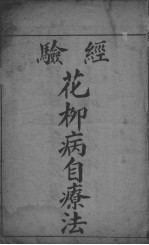 經驗
花柳病自療法